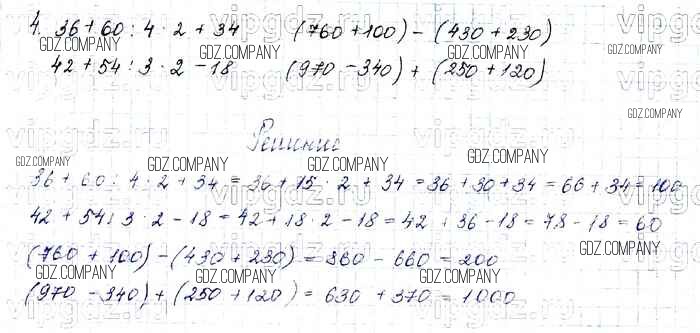 4. 36 + 60 : 4 · 2 + 34 (760 + 100) - (430 + 230)
42 + 54 : 3 · 2 - 18 (970 - 340) + (250 + 120)
Решение
36 + 60 : 4 · 2 + 34 = 36 + 15 · 2 + 34 = 36 + 30 + 34 = 66 + 34 = 100
42 + 54 : 3 · 2 - 18 = 42 + 18 · 2 - 18 = 42 + 36 - 18 = 78 - 18 = 60
(760 + 100) - (430 + 230) = 860 - 660 = 200
(970 - 340) + (250 + 120) = 630 + 370 = 1000
GDZ.COMPANY
vipgdz.ru